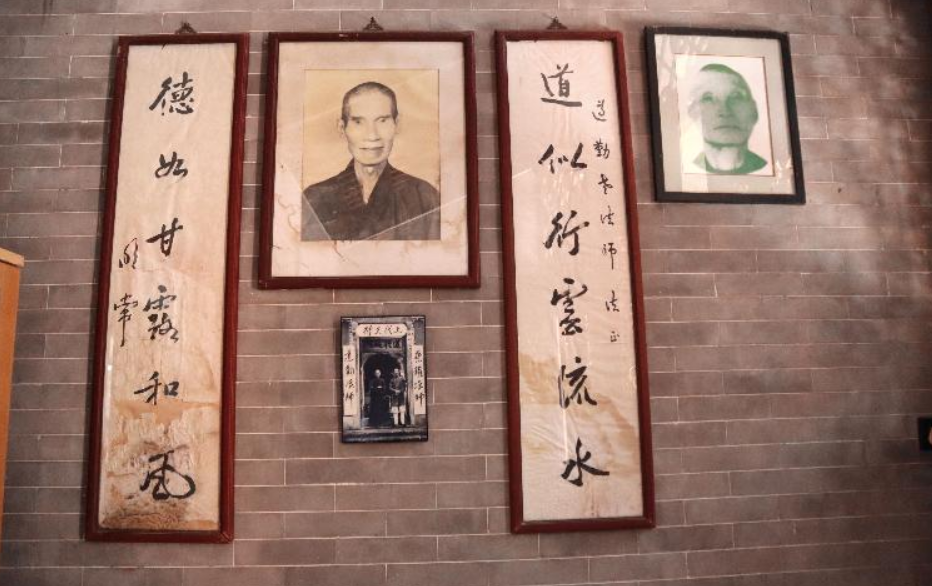 道似行雲流水
勤老法師 法正
德如甘露和風
常
勤法師